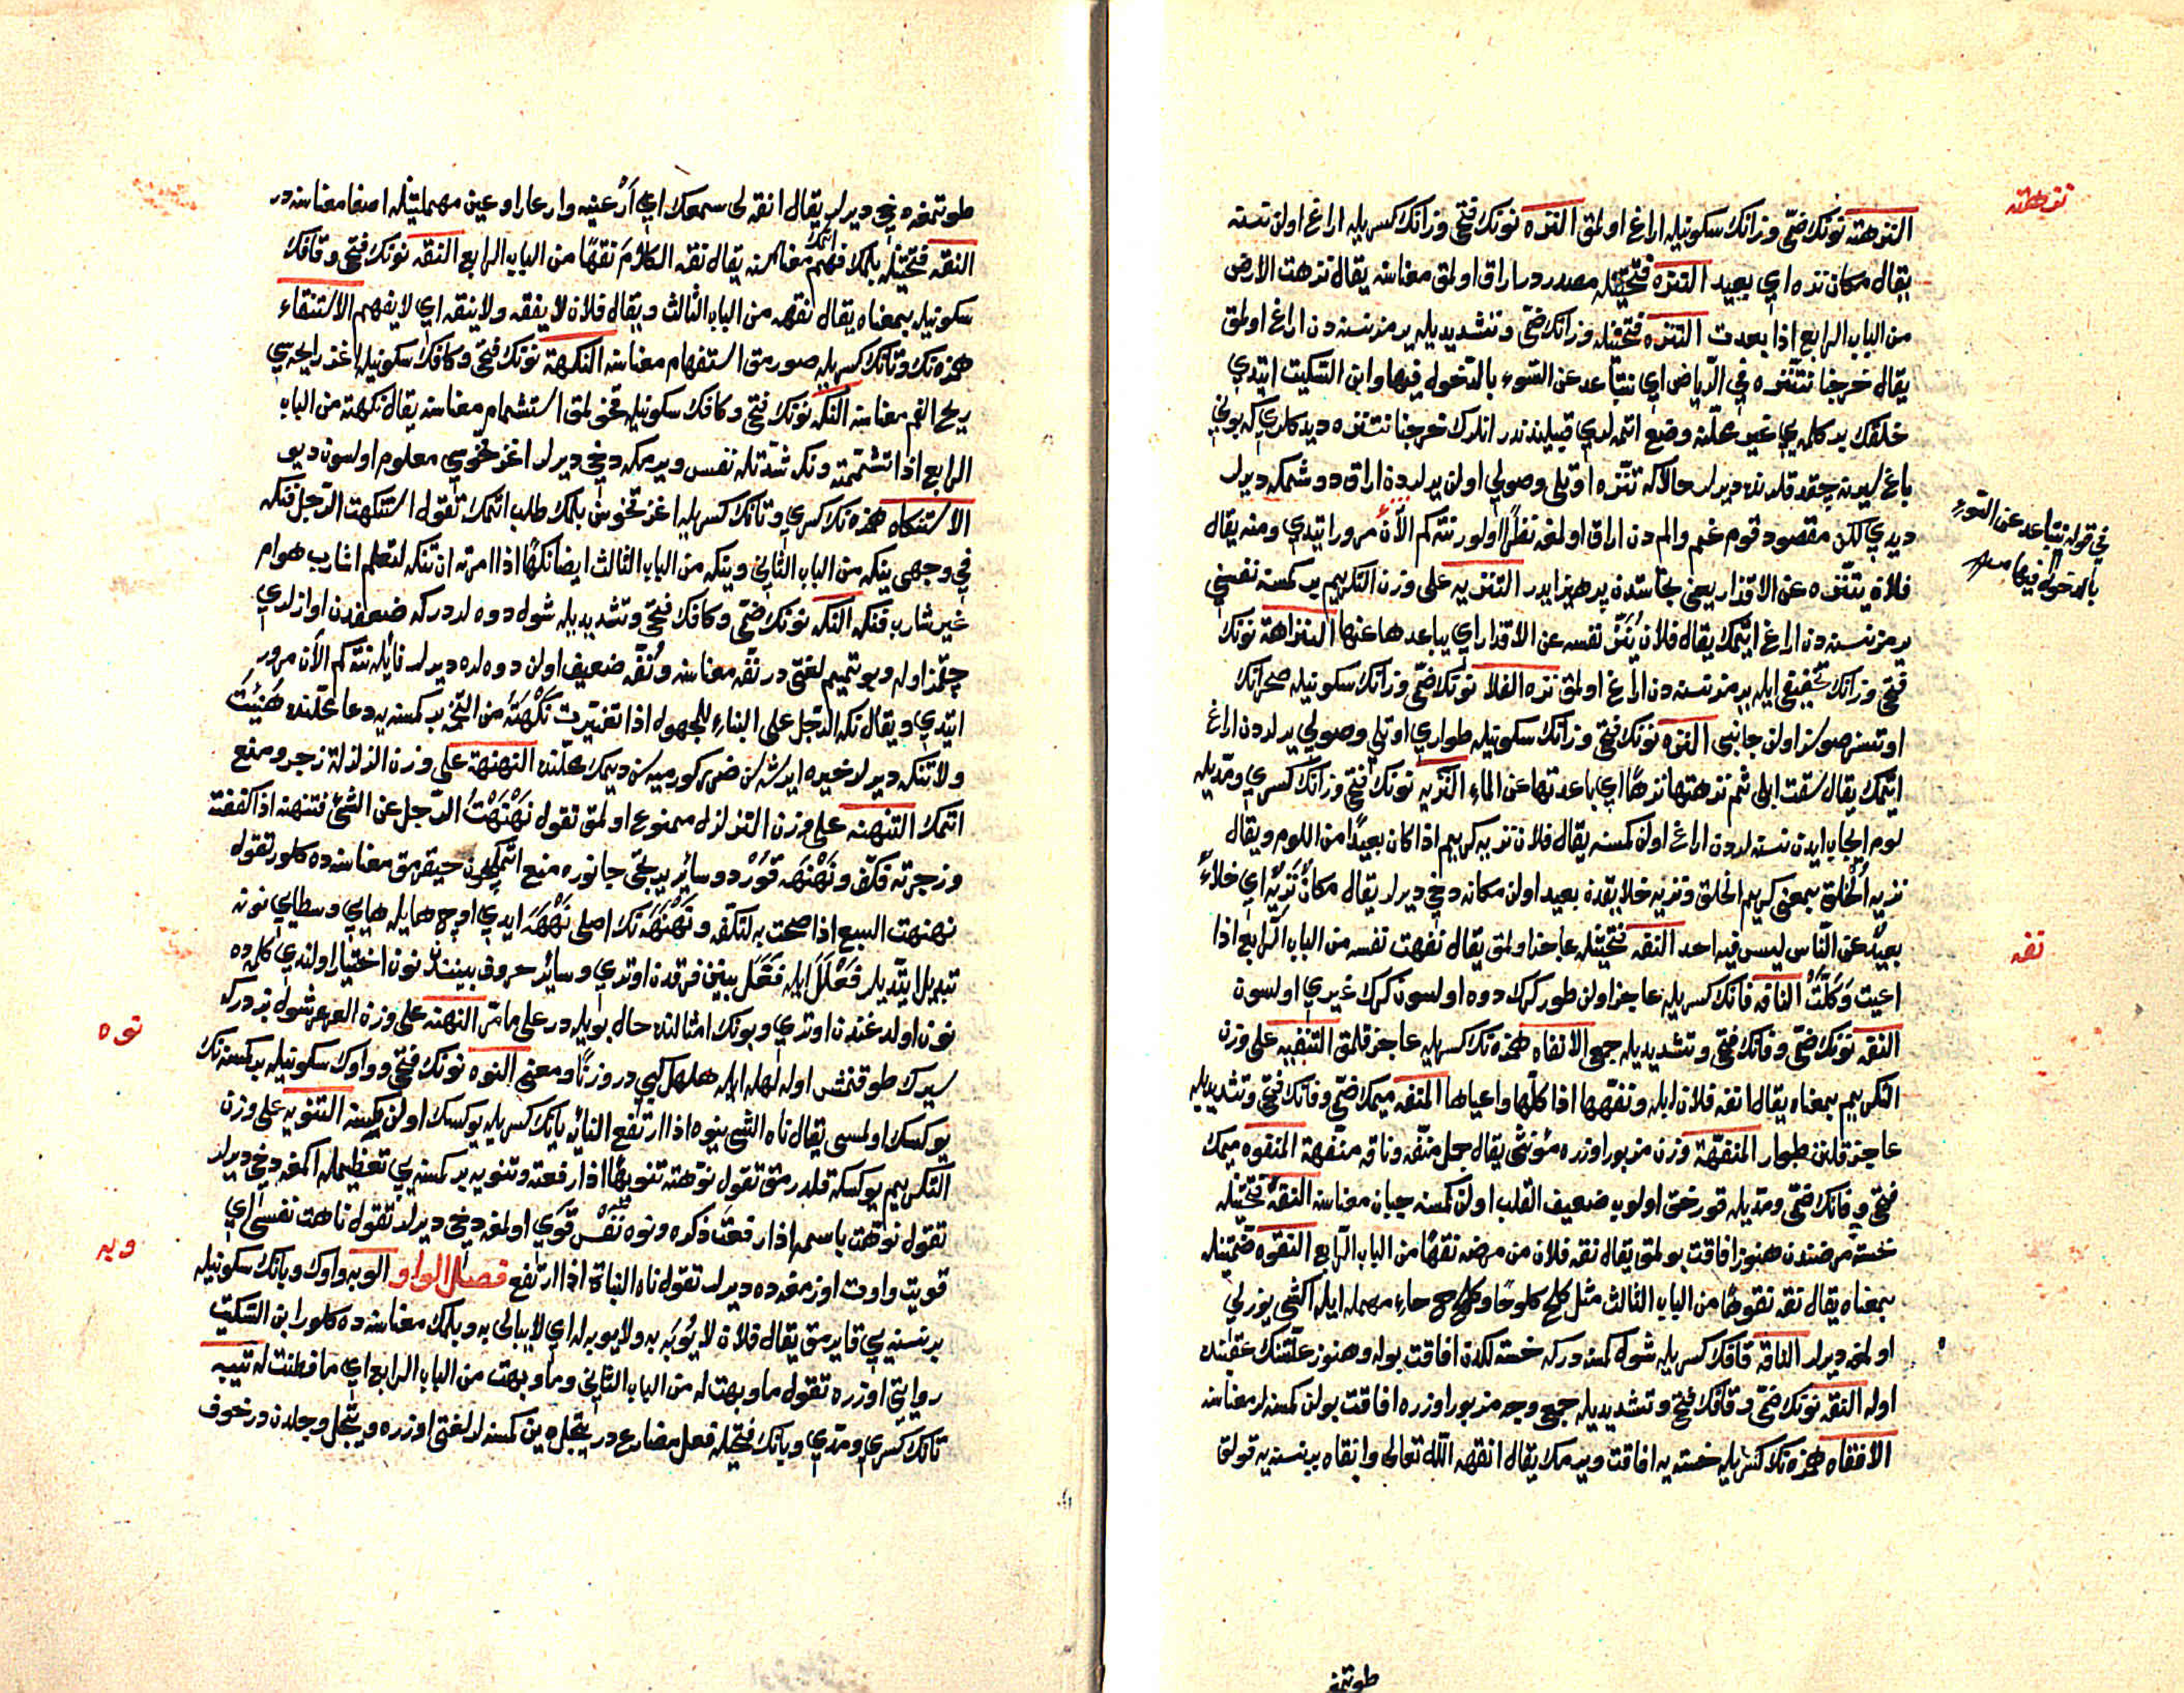 النزهة نونك ضمّى وزانك سكونيله اراغ اولمق النزه نونك فتحى وزانك كسريله اراغ اولن نسنه
يقال مكان نزه اي بعيد النزه فتحتيله مصدردر اراق اولمق معناسنه يقال نزهت الارض
من الباب الرابع اذا بعدت التنزه فتحتيله وزانك ضمّى وتشديديله بر نسنه دن اراغ اولمق
يقال خرجنا نتنزه في الرياض اي نتباعد عن السوء بالدخول فيها وابن السكيت ايتدي
خلقك بر كلمه يي غير محلنه وضع اتمه لري قبيلندندر انلرك خرجنا نتنزه ديدكلري كه بونى
باغ لرينه چقدقلرنده ديرلر حالاكه تنزه اوتلى وصولى اولن يرلردن اراق دوشمكه ديرلر
ديدي لكن مقصود قوم غم والمدن اراق اولمغه نظرا اولور نته كم الآن مرور ايتدي ومنه يقال
فلان يتنزه عن الاقذار يعنى نجاستدن پرهيز ايدر التنزيه على وزن التكريم بر كمسنه نفسنى
بر نسنه دن اراغ ايتمك يقال فلان ينزه نفسه عن الاقذار اي يباعدها عنها النزاهة نونك
فتحى وزانك تخفيفى ايله بر نسنه دن اراغ اولمق نزه الفلا نونك ضمّى وزانك سكونيله صحرانك
اوتسز صوسز اولن جانبى النزه نونك فتحى وزانك سكونيله طوارى اوتلى وصولى يرلردن اراغ
ايتمك يقال سقت ابلى ثم نزهتها نزها اي باعدتها عن الماء النزيه نونك فتحى وزانك كسري ومدّيله
لوم ايجاب ايدن نسنه لردن اراغ اولن كمسنه يقال فلان نزيه كريم اذا كان بعيدا من اللوم ويقال
نزيه الخلق بمعنى كريم الخلق ونزيه خلايقدن بعيد اولن مكانه دخى ديرلر يقال مكان نزيه اي خلاء
بعيد عن الناس ليس فيه احد النفه فتحتيله عاجز اولمق يقال نفهت نفسه من الباب الرابع اذا
اعيت وكلت النافه فانك كسريله عاجز اولن طور كرك دوه اولسون كرك غيري اولسون
النفه نونك ضمّى وفانك فتحى وتشديديله جمع الانفاه همزه نك كسريله عاجز قلمق التنفيه على وزن
التكريم بمعناه يقال انفه فلان ابله ونفهها اذا كلها واعياها المنفه ميمك ضمّى وفانك فتحى وتشديديله
عاجز قلنن طوار المنفهة وزن مزبور اوزره مؤنثى يقال جمل منفه وناقة منفهة المنفوه ميمك
فتحى وفانك ضمّى ومدّيله قورخق اولوب ضعيف القلب اولن كمسنه جبان معناسنه النقه فتحتيله
خسته مرضندن هنوز افاقت بولمق يقال نقه فلان من مرضه نقها من الباب الرابع النقوه ضمّتيله
بمعناه يقال نقه نقوها من الباب الثالث مثل كلح كلوحا وكلح حاء مهمله ايله اكشى يوزلى
اولمغه ديرلر الناقه قافك كسريله شول كمسنه دركه خسته لكدن افاقت بوله وهنوز علتنك عقبنده
اوله النقه نونك ضمّى وقافك فتحى وتشديديله جمعى وجه مزبور اوزره افاقت بولن كمسنه لر معناسنه
الانقاه همزه نك كسريله خسته يه افاقت ويرمك يقال انقهه الله تعالى وانقاه بر نسنه يه قولق
طوتمغه
في قوله نتباعد عن السوء
بالدخول فيها
نزهة
نفه
طوتمغه دخى ديرلر يقال انقه لى سمعك اي ارعنيه وارعا را وعين مهملتيله اصغا معناسنه در
النقه فتحتيله بلمك فهم اتمك معناسنه يقال نقه الكلام نقها من الباب الرابع النقه نونك فتحى وقافك
سكونيله بمعناه يقال نقهه من الباب الثالث ويقال فلان لا يفقه ولا ينقه اي لا يفهم الاستنقاه
همزه نك وتانك كسريله صورمق استفهام معناسنه النكهة نونك فتحى وكافك سكونيله اغز رايحه سي
ريح الفم معناسنه النكه نونك فتحى وكافك سكونيله قخولمق استشمام معناسنه يقال نكهته من الباب
الرابع اذا تشممته ونكه شدّتله نفس ويرمكه دخى ديرلر اغز قخوسي معلوم اولسون ديو
الاستنكاه همزه نك كسري وتانك كسريله اغز قخوسن بلمك طلب اتمك تقول استنكهت الرجل فنكه
في وجهى ينكه من الباب الثانى وينكه من الباب الثالث ايضا نكها اذا امرته ان تنكه لتعلم اشارب هو ام
غير شارب فنكه النكه نونك ضمّى وكافك فتحى وتشديديله شول دوه لردركه ضعفدن اوازلري
چقمز اوله وبو تميم لغتى در نقّه معناسنه ونقّه ضعيف اولن دوه لره ديرلر نايله نته كم الآن مرور
ايتدي ويقال نكه الرجل على البناء للمجهول اذا تغيرت نكهته من التخم بر كمسنه يه دعا محلنده هنيت
ولا تنكه ديرلر خيره ايرشه سن ضرر كورميه سن ديمك محلنده النهنهة على وزن الزلزلة زجر ومنع
اتمك التنهنه على وزن التزلزل ممنوع اولمق تقول نهنهت الرجل عن الشئ فتنهنه اذا كففته
وزجرته فكف ونهنهه قورد وسائر يرتجى جانوره منع اتمكچون حيقرمق معناسنه ده كلور تقول
نهنهت السبع اذا صحت به لتكفه ونهنهه نك اصلى نههه ايدي اوچ هايله هاي وسطايي نونه
تبديل ايتديلر فعلل ايله فعل بينن فرقدن اوتري وسائر حروف بيننده نون اختيار اولندي كلمه ده
نون اولدغندن اوتري وبونك امثالنده حال بويله در على ما مرّ النهنه على وزن العرعر شول بزدركه
سيرك طوقنمش اوله لهله ايله هلهل كبى در وزنا ومعنى النوه نونك فتحى وواوك سكونيله بر كمسنه نك
يوكسك اولمسى يقال ناه الشى ينوه اذا ارتفع النائه يانك كسريله يوكسك اولن كمسنه التنويه على وزن
التكريم يوكسكه قلدرمق تقول نوهته تنويها اذا رفعته وتنويه بر كمسنه يي تعظيمله اكمغه دخى ديرلر
تقول نوهت باسمه اذا رفعت ذكره ونوه نفس قوى اولمغه دخى ديرلر تقول ناهت نفسى اي
قويت واوت اوزمغه ده ديرلر تقول ناه النبات اذا ارتفع فصل الواو الوبه واوك وبانك سكونيله
بر نسنه يي قايرمق يقال فلان لا يوبه به ولا يوبه له اي لا يبالى به وبلمك معناسنه ده كلور ابن السكيت
روايتى اوزره تقول ما وبهت له من الباب الثانى وما وبهت من الباب الرابع اي ما فطنت له تيبه
تانك كسري ومدّي وبانك فتحيله فعل مضارع در يتجل دين كمسنه لر لغتى اوزره ويتجل وجلدن در خوف
نوه
وبه